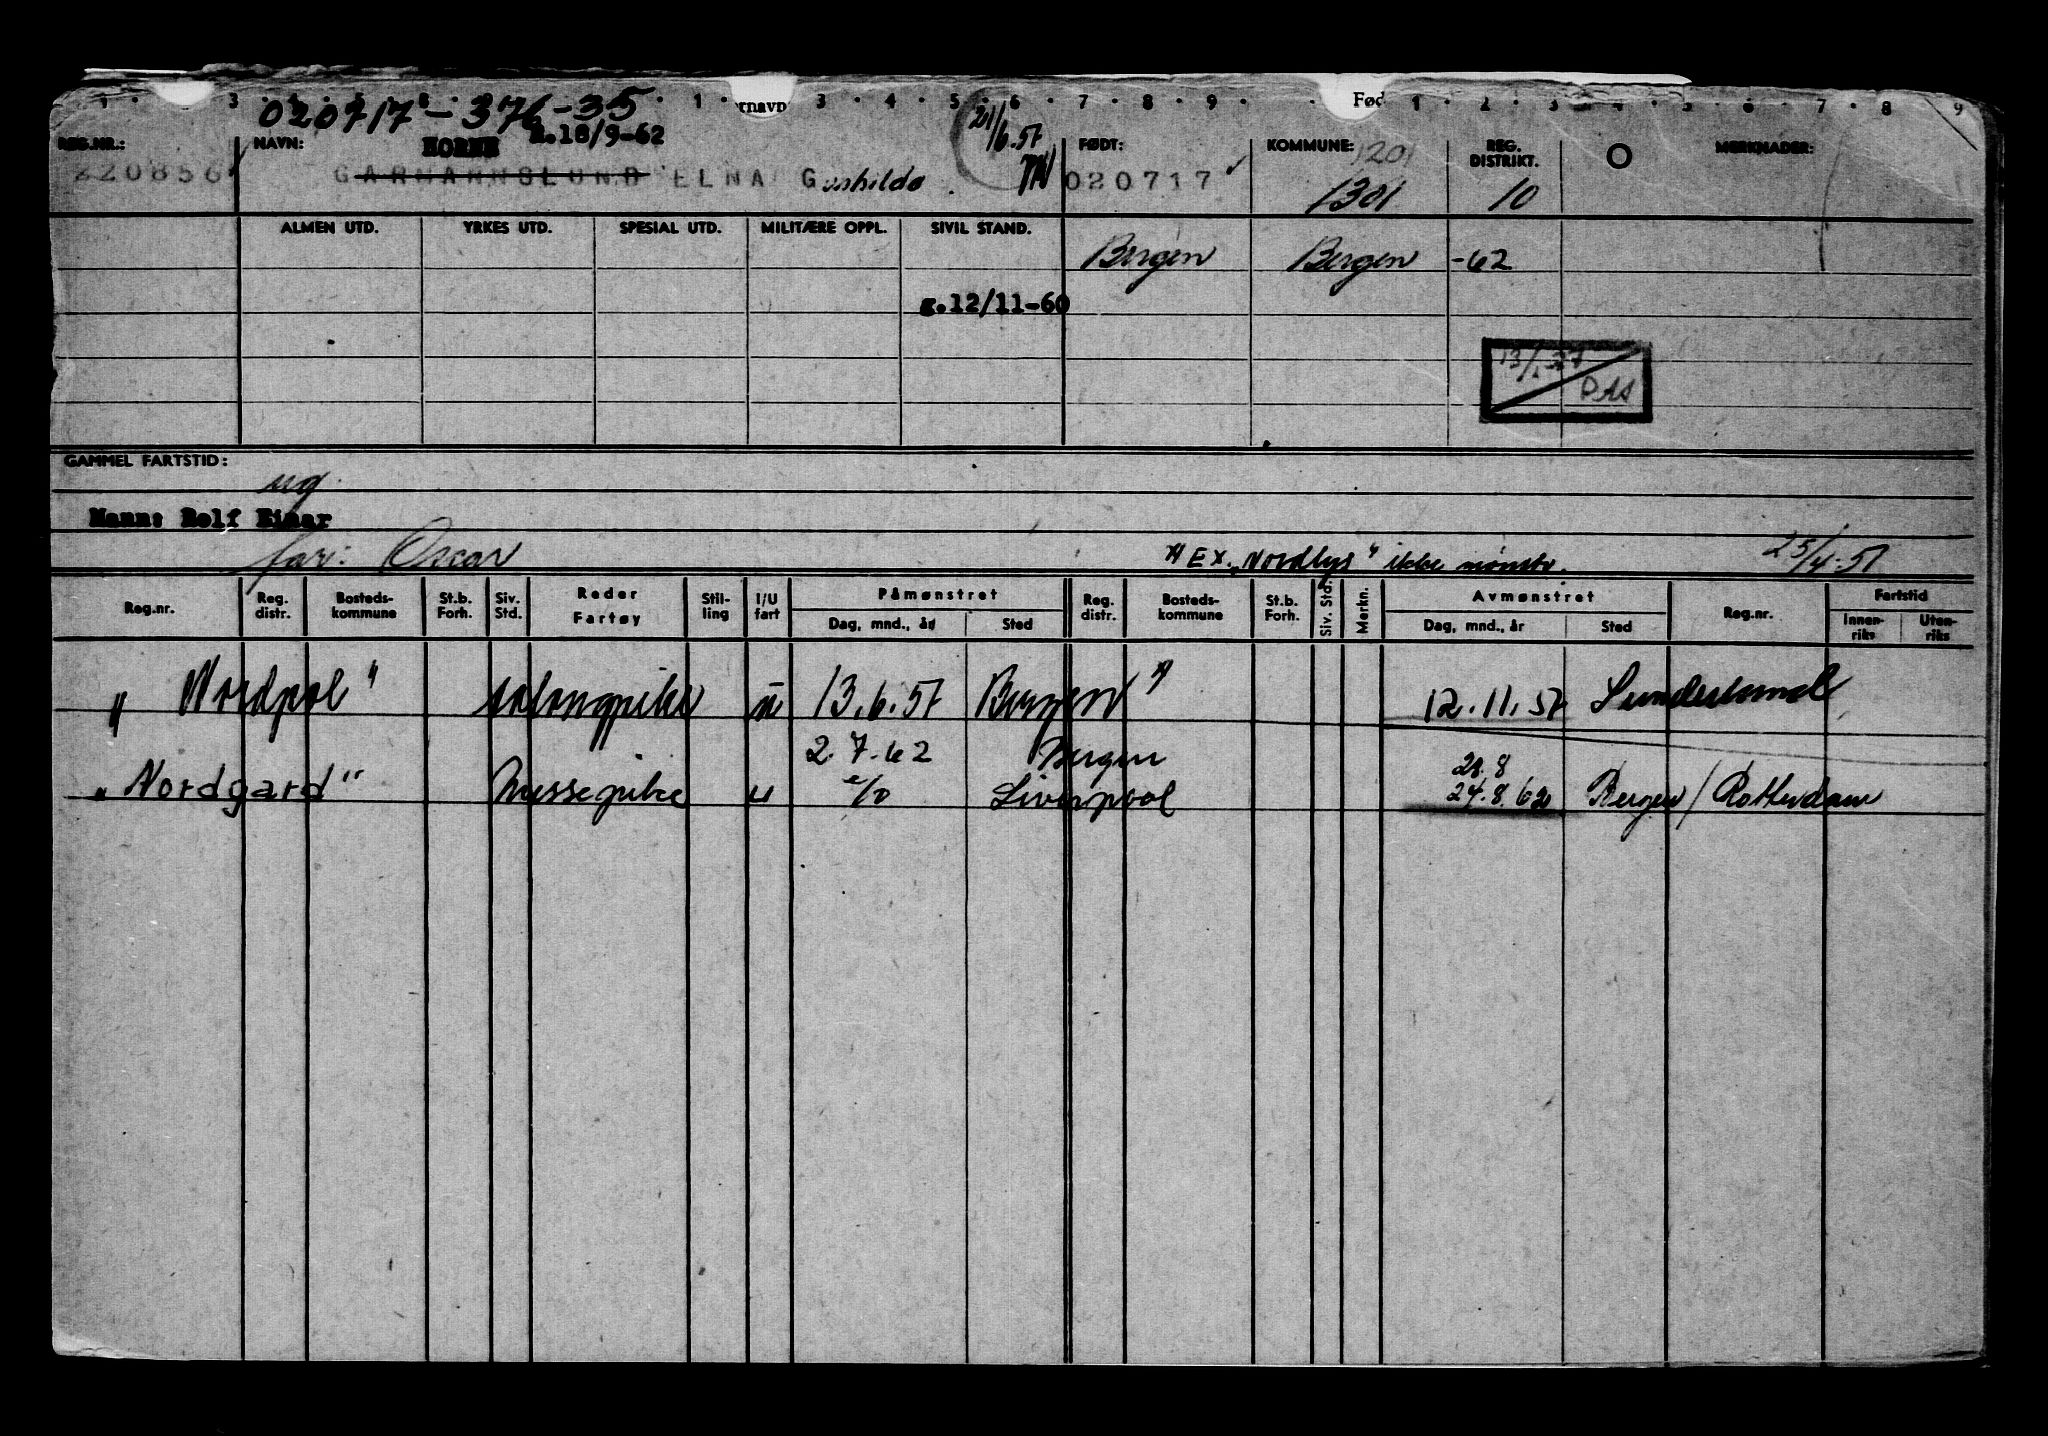 1 . . 3 . 4 . 5 . 6 . . . 1 . rnavn 3 . 4 . 5 . 6 . 7 . 8 . 9 . . Fød 1 . 2 . 3 . 4 . 5 . 6 . 7 . 8 9
020717-376-35
REG.NR.: NAVN: HORNE n.18/9-62 21/6.57 FØDT: KOMMUNE: 1201 REG. DISTRIKT. MERKNADER:
220856 GARMANNSLUND ELNA Gunhilda 020717 1301 10
ALMEN UTD. YRKES UTD. SPESIAL UTD. MILITÆRE OPPL. SIVIL STAND.
Bergen Bergen -62
g.12/11-60
PAS
GAMMEL FARTSTID:
ug.
Mann: Rolf Einar
far: Oscar
*) EX. "Nordlys" ikke mønstr. 25/4.57
Reg.nr. Reg. distr. Bosteds-kommune St.b. Forh. Siv. Std. Reder Fartøy Stil-ling I/U fart Påmønstret Reg. distr. Bosteds-kommune St.b. Forh. Siv. Std. Merkn. Avmønstret Reg.nr. Fartstid
Dag, mnd., år Sted Dag, mnd., år Sted Innen-riks Uten-riks
"Nordpol" salongpike u 13.6.57 Bergen *) 12.11.57
2.7.62 Bergen 21.8
"Nordgard" Messepike u Liverpool 24.8.62 Bergen / Rotterdam